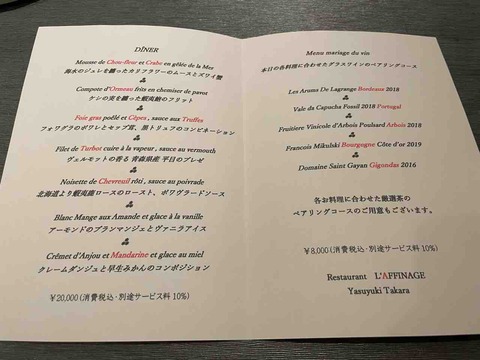 DÎNER
Mousse de Chou-fleur et Crabe en gélée de la Mer
海水のジュレを纏ったカリフラワーのムースとズワイ蟹
Compote d'Ormeau frits en chemiser de pavot
ケシの実を纏った蝦夷鮑のフリット
Foie gras poêlé et Cèpes , sauce aux Truffes
フォワグラのポワレとセップ茸、黒トリュフのコンビネーション
Filet de Turbot cuire à la vapeur , sauce au vermouth
ヴェルモットの香る 青森県産 平目のブレゼ
Noisette de Chevreuil rôti , sauce au poivrade
北海道より蝦夷鹿ロースのロースト、ポワヴラードソース
Blanc Mange aux Amande et glace à la vanille
アーモンドのブランマンジェとヴァニラアイス
Crémet d'Anjou et Mandarine et glace au miel
クレームダンジュと早生みかんのコンポジション
¥20,000 (消費税込・別途サービス料 10%)
Menu mariage du vin
本日の各料理に合わせたグラスワインのペアリングコース
Les Arums De Lagrange Bordeaux 2018
Vale da Capucha Fossil 2018 Portugal
Fruitiere Vinicole d'Arbois Poulsard Arbois 2018
Francois Mikulski Bourgogne Côte d'or 2019
Domaine Saint Gayan Gigondas 2016
各お料理に合わせた厳選茶の
ペアリングコースのご用意もございます。
¥8,000 (消費税込・別途サービス料 10%)
Restaurant L'AFFINAGE
Yasuyuki Takara